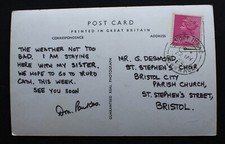 POST CARD
PRINTED IN GREAT BRITAIN
THE WEATHER NOT TOO
BAD. I AM STAYING
HERE WITH MY SISTER,
WE HOPE TO GO TO
CAM. THIS WEEK.
SEE YOU SOON
GUARANTEED REAL PHOTOGRAPH
MR. G. DESMOND,
ST. STEPHEN'S
BRISTOL CITY
PARISH CHURCH,
ST. STEPHEN'S STREET,
BRISTOL.